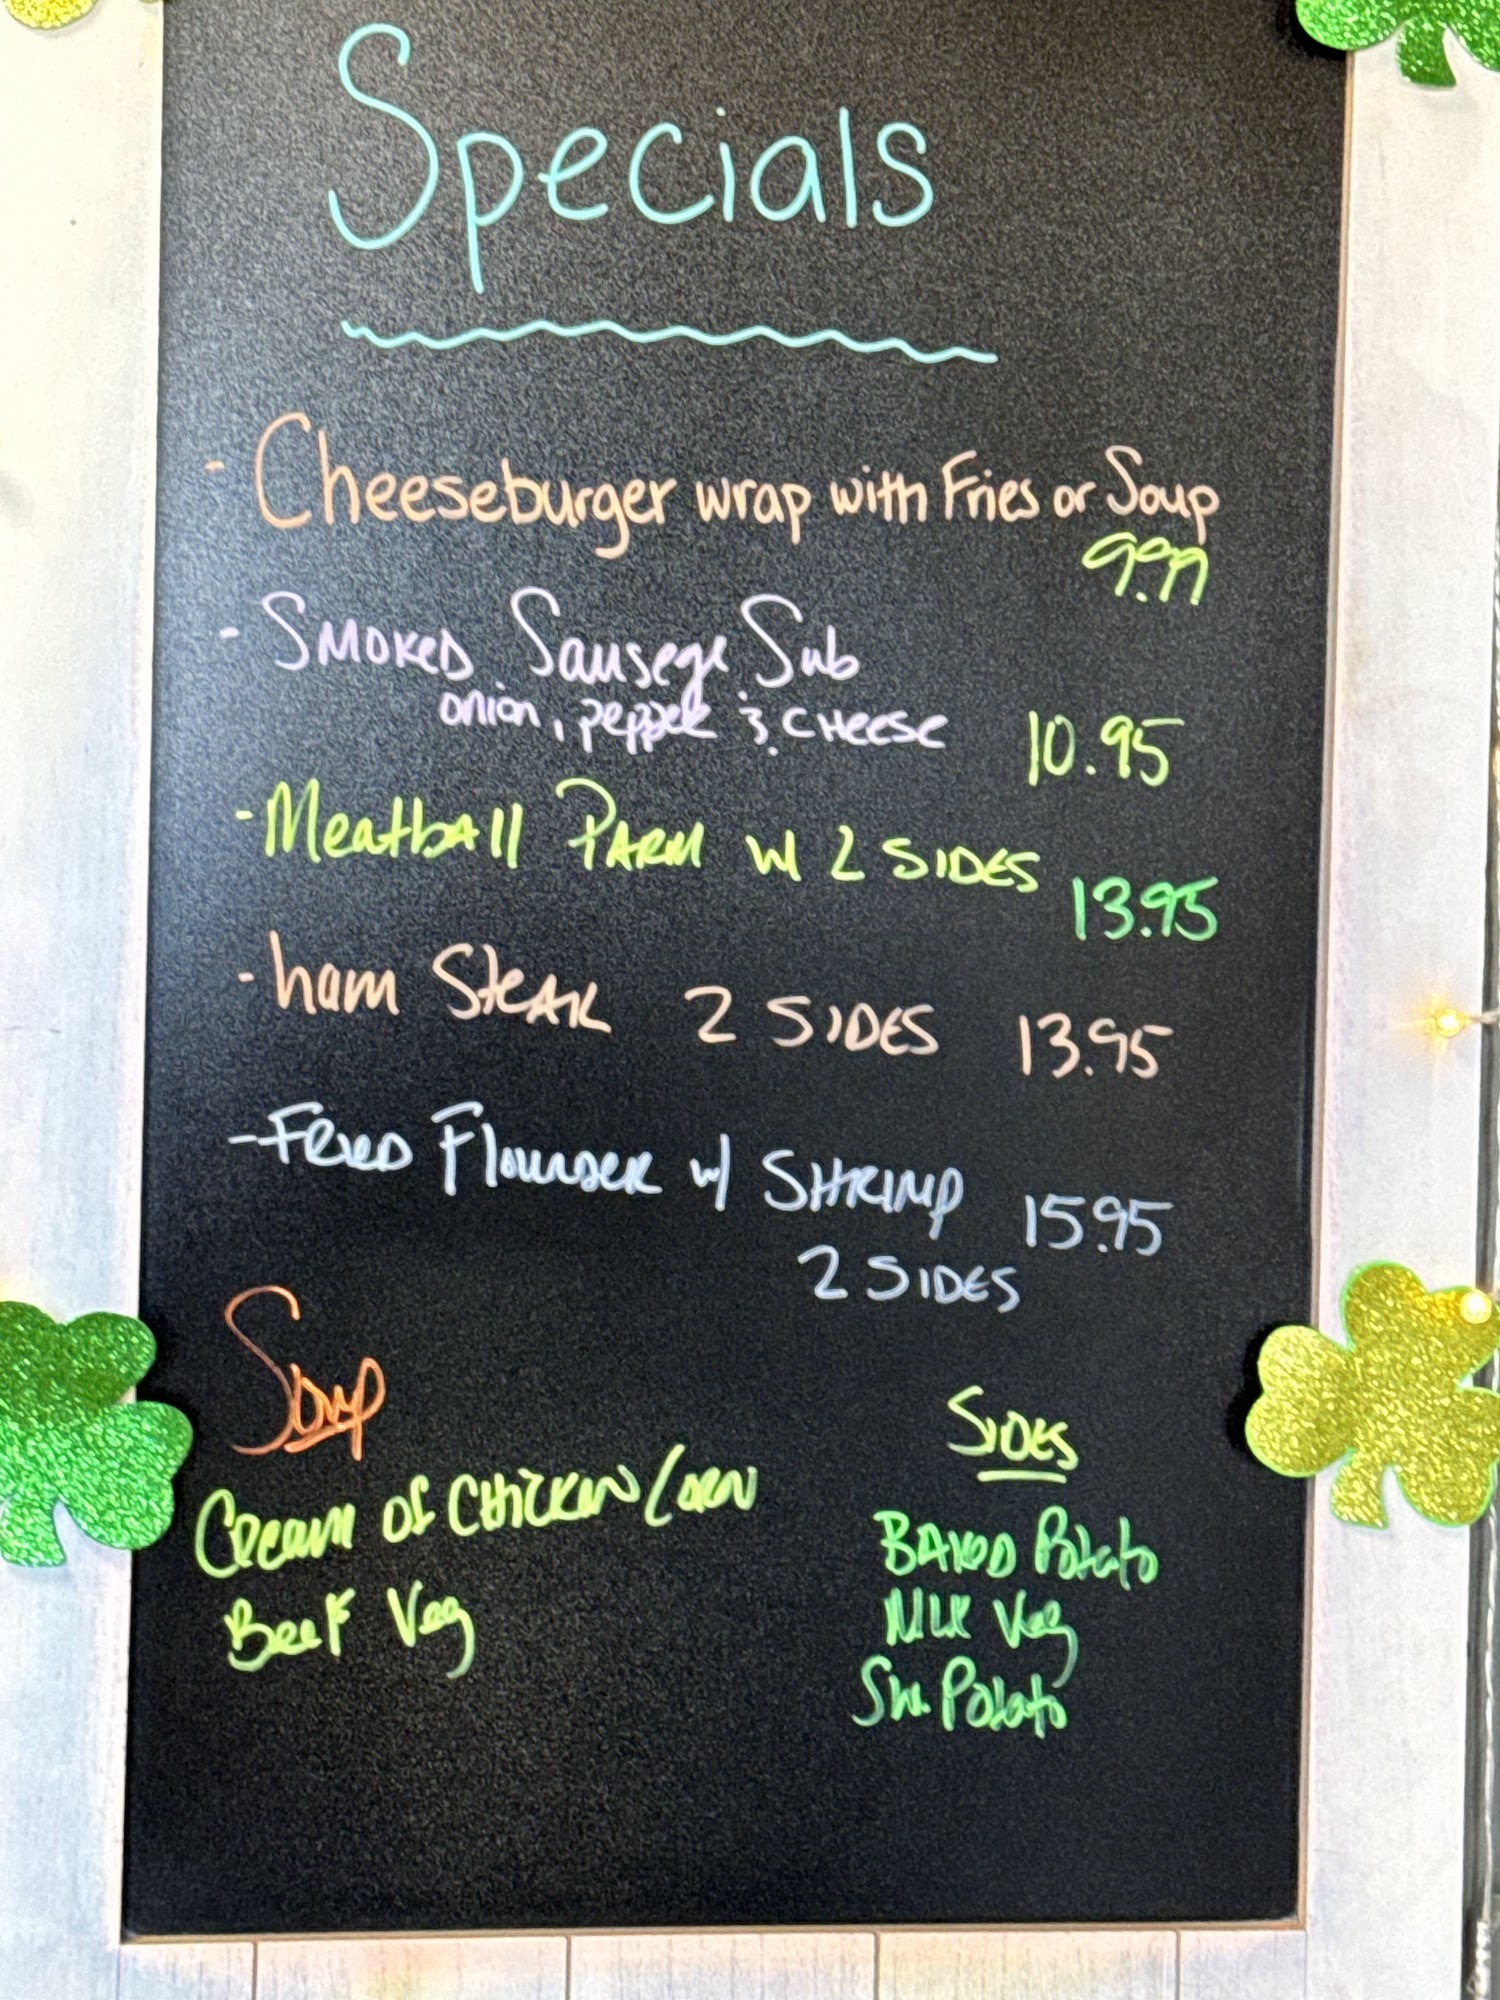 Specials
- Cheeseburger wrap with Fries or Soup
9.99
- Smoked Sausege Sub
onion, pepper & CHeese 10.95
- Meatball Parm w/ 2 SIDES
13.95
- ham Steak 2 SIDES 13.95
- Fried Flounder w/ SHRIMP 15.95
2 SIDES
Soup
Cream of CHicken Corn
Beef Veg
SIDES
BAKED Potato
Mix Veg
Sw. Potato